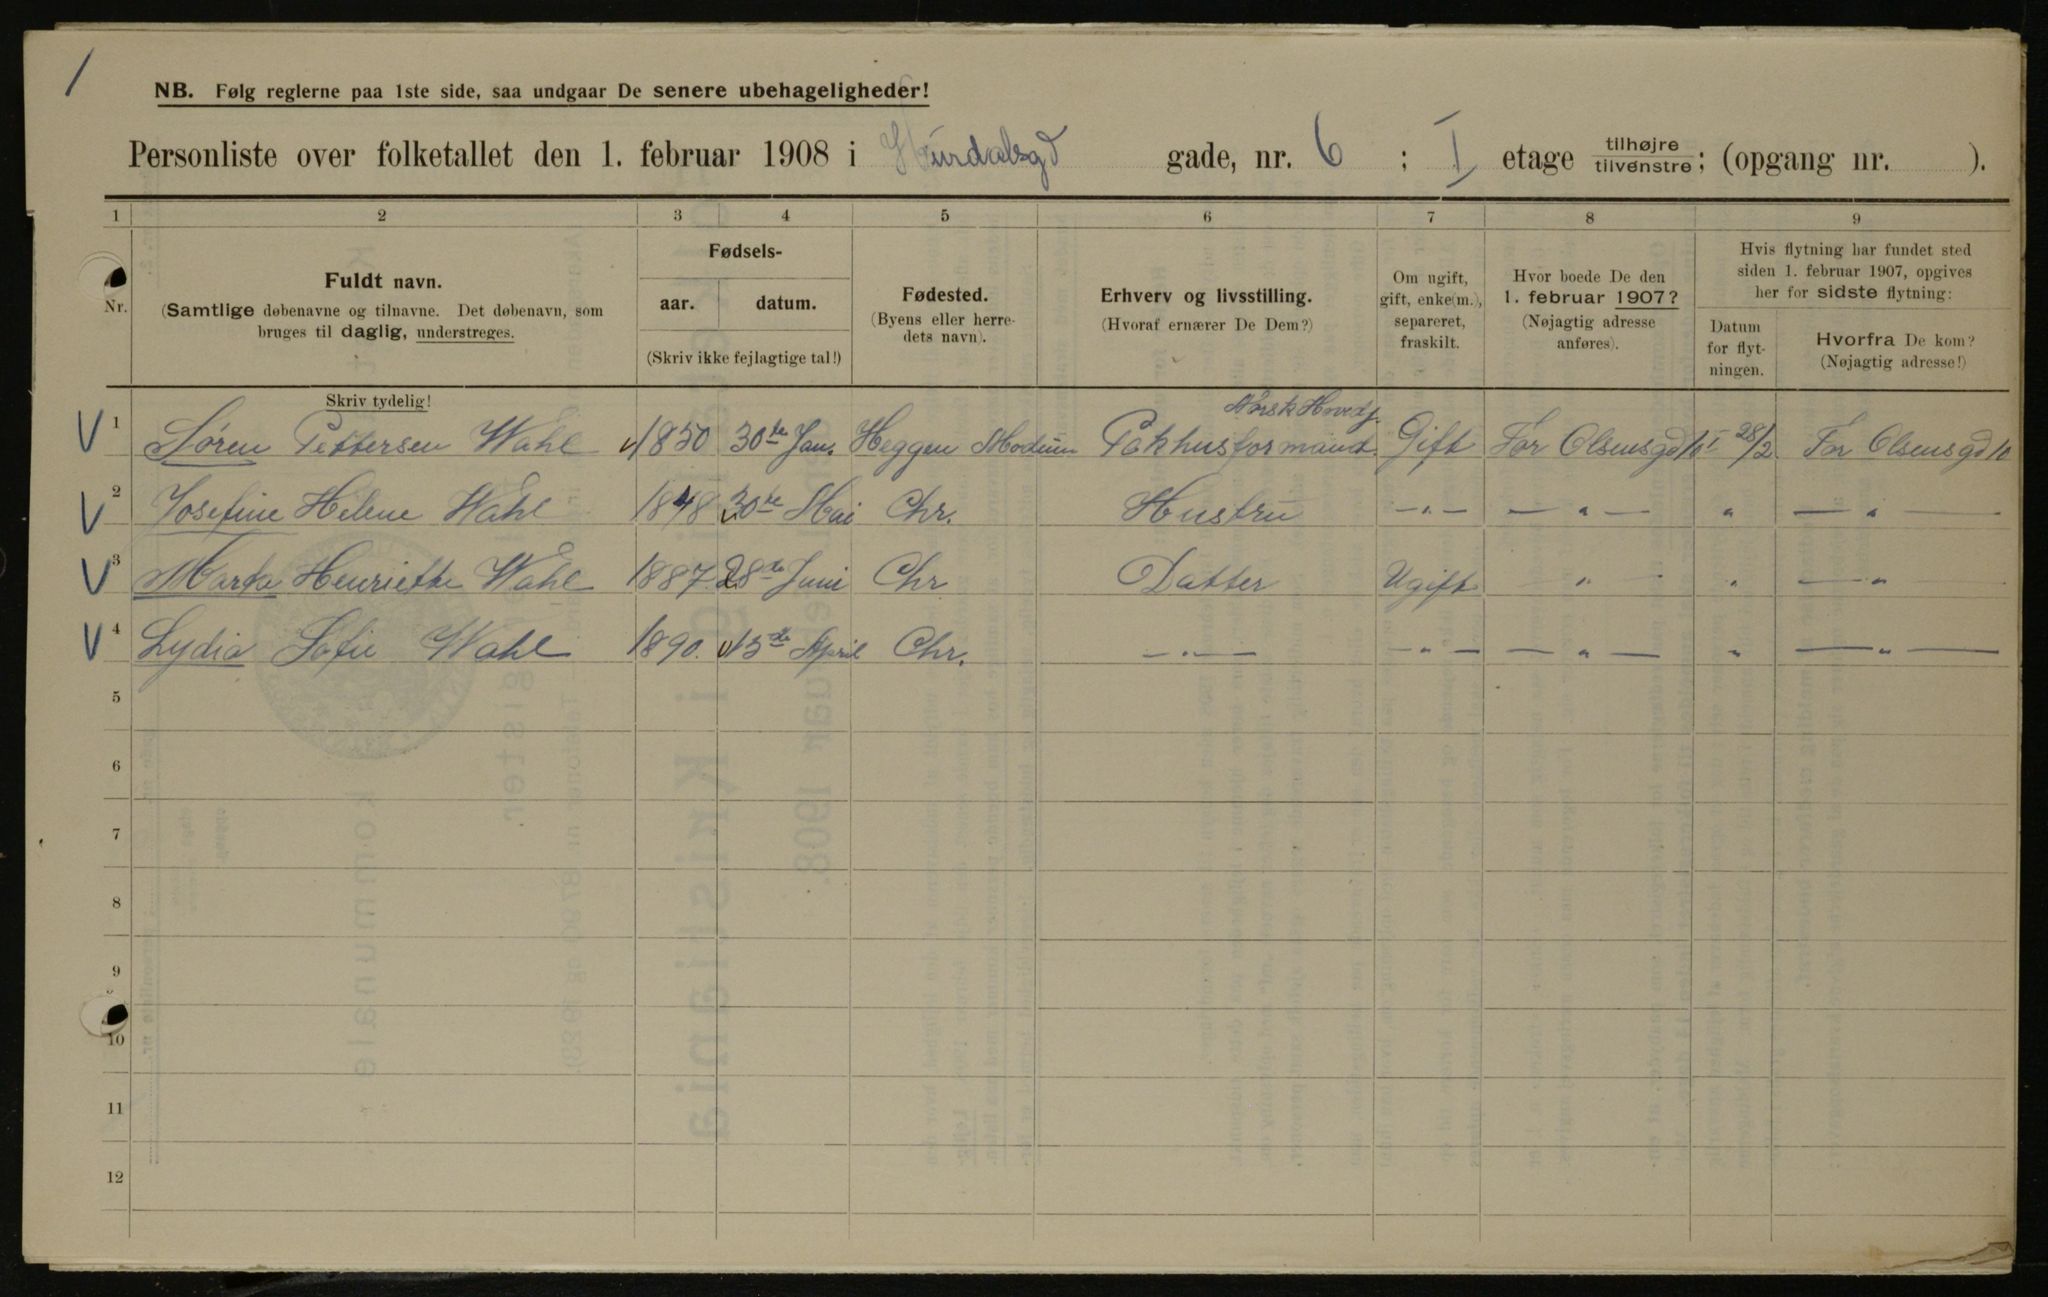 1
NB. Følg reglerne paa 1ste side, saa undgaar De senere ubehageligheder!
Personliste over folketallet den 1. februar 1908 i Hurdalsgd gade, nr. 6 ; I etage tilhøjre / tilvenstre ; (opgang nr. ).
1 2 3 4 5 6 7 8 9
Nr.
Fuldt navn.
(Samtlige døbenavne og tilnavne. Det døbenavn, som
bruges til daglig, understreges.
Skriv tydelig!
Fødsels-
aar. datum.
(Skriv ikke fejlagtige tal!)
Fødested.
(Byens eller herre-
dets navn).
Erhverv og livsstilling.
(Hvoraf ernærer De Dem?)
Om ugift,
gift, enke(m.),
separeret,
fraskilt.
Hvor boede De den
1. februar 1907?
(Nøjagtig adresse
anføres).
Hvis flytning har fundet sted
siden 1. februar 1907, opgives
her for sidste flytning:
Datum
for flyt-
ningen.
Hvorfra De kom?
(Nøjagtig adresse!)
Norsk Hovedj.
V 1 Søren Pettersen Wahl 1850 30te Jan. Heggen Modum Pakhusformand. Gift For Olsensgd 10 I 28/2 For Olsensgd 10
V 2 Josefine Helene Wahl 1848 30te Mai Chr. Hustru —"— — " — " — " —
V 3 Marta Henriette Wahl 1887 28de Juni Chr Datter Ugift " " — " —
V 4 Lydia Sofie Wahl 1890. 13de April Chr. —"— — " — — " — " — " —
5
6
7
8
9
10
11
12